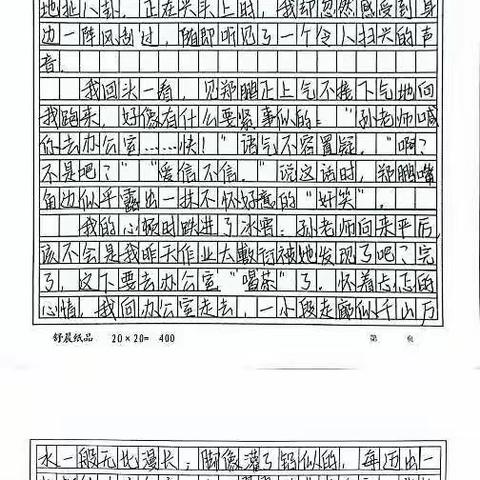 地扯八卦。正在兴头上时，我却忽然感受到身
边一阵风刮过，随即听见了一个令人扫兴的声
音。
我回头一看，见郑鹏正上气不接下气地向
我跑来，好像有什么要紧事似的："孙老师喊
你去办公室……快！"语气不容置疑。"啊？
不是吧？""爱信不信。"说这话时，郑鹏嘴
角边似乎露出一抹不怀好意的"奸笑"。
我的心顿时跌进了冰窖：孙老师向来严厉，
该不会是我昨天作业太敷衍被她发现了吧？完
了，这下要去办公室"喝茶"了。怀着忐忑的
心情，我向办公室走去，一小段走廊似千山万
舒晨纸品 20×20= 400 第 页
水一般无比漫长，脚像灌了铅似的，每迈出一